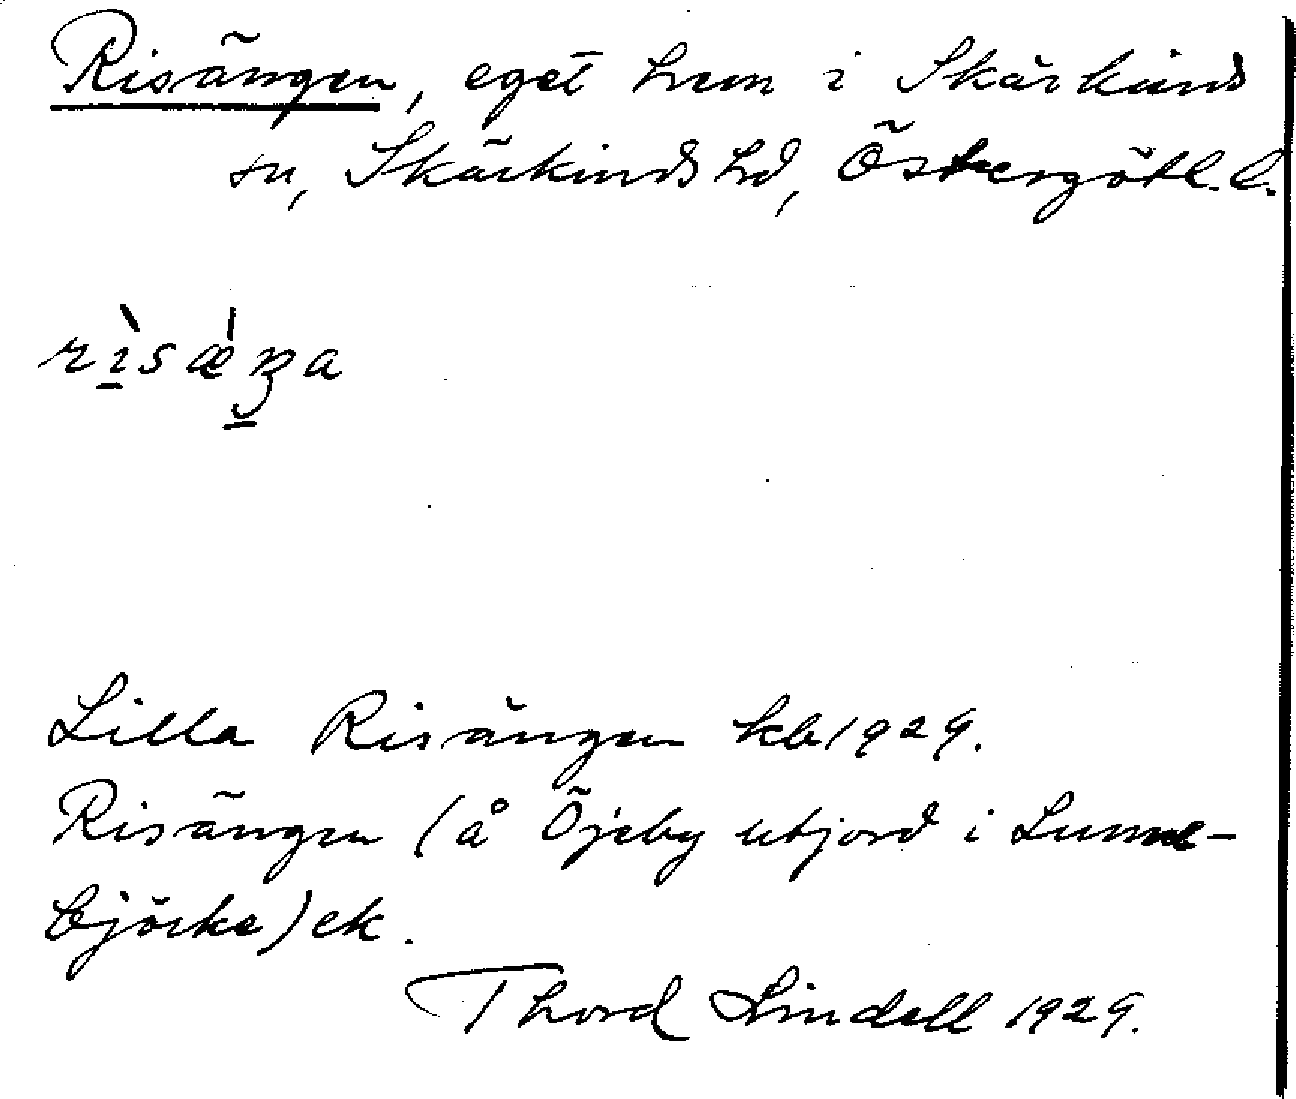 Risängen, eget hem i Skärkind
sn, Skärkinds hd, Östergötl. l.
rìsǽŋa
Lilla Risängen kb 1929.
Risängen (å Öjeby utjord i Lunne-
björke) ek.
Thord Lindell 1929.